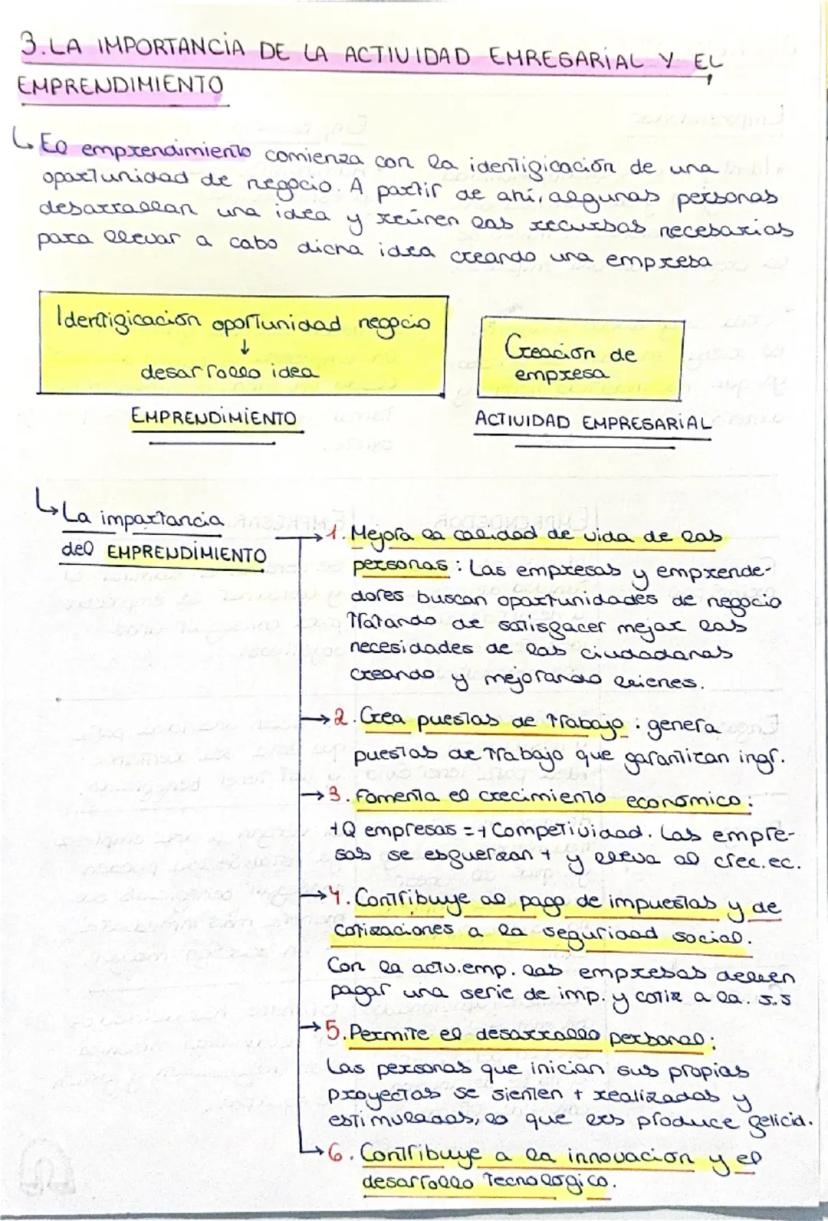 3. LA IMPORTANCIA DE LA ACTIVIDAD EMRESARIAL Y EL
EMPRENDIMIENTO
↳ El emprendimiento comienza con la identificación de una
oportunidad de negocio. A partir de ahí, algunas personas
desarrollan una idea y reúnen los recursos necesarios
para llevar a cabo dicha idea creando una empresa
Identificación oportunidad negocio
↓
desarrollo idea
Creación de
empresa
EMPRENDIMIENTO
ACTIVIDAD EMPRESARIAL
↳ La importancia
del EMPRENDIMIENTO
→ 1. Mejora la calidad de vida de las
personas: Las empresas y emprende-
dores buscan oportunidades de negocio
Tratando de satisfacer mejor las
necesidades de los ciudadanos
creando y mejorando bienes.
→ 2. Crea puestos de trabajo: genera
puestos de trabajo que garantizan ingr.
→ 3. Fomenta el crecimiento económico:
+Q empresas = + Competividad. Las empre-
sas se esfuerzan + y lleva al crec. ec.
→ 4. Contribuye al pago de impuestos y de
cotizaciones a la seguridad social.
Con la actv. emp. las empresas deben
pagar una serie de imp. y cotiz a la. S.S
→ 5. Permite el desarrollo personal:
Las personas que inician sus propios
proyectos se sienten + realizados y
estimulados, lo que les produce felicid.
→ 6. Contribuye a la innovación y el
desarrollo Tecnologico.